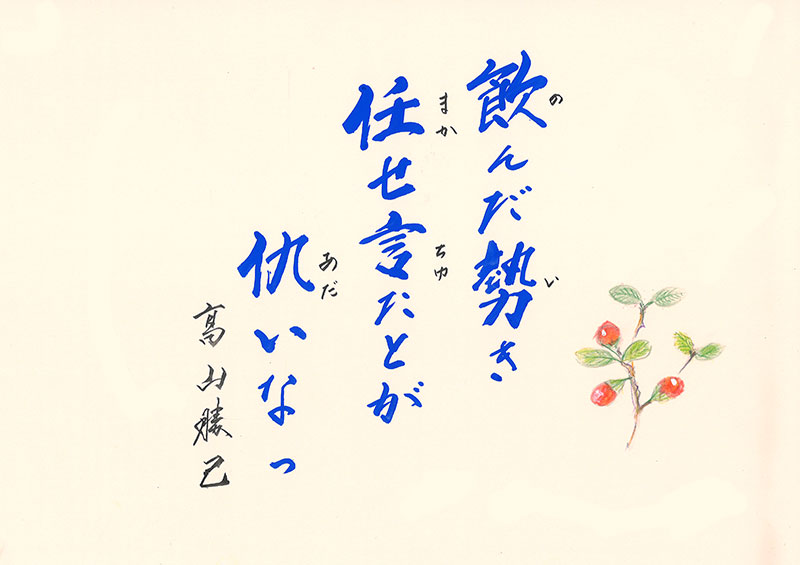 飲んだ勢き
の い
任せ言たとが
まか ちゆ
仇いなっ
あだ
高山勝己